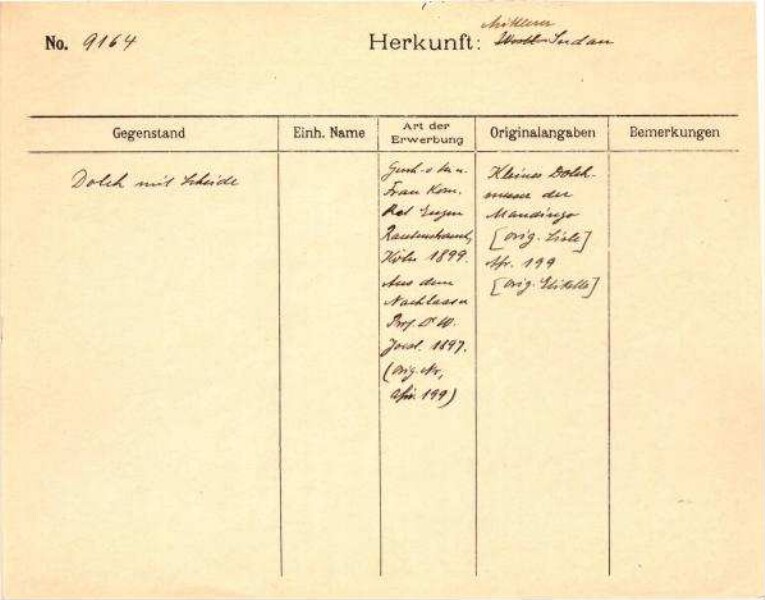 No. 9164
Herkunft: Mittlerer
West-Sudan
Gegenstand
Einh. Name
Art der
Erwerbung
Originalangaben
Bemerkungen
Dolch mit Scheide
Gesch. d.
Frau Kom.
Rat Eugen
Rautenstrauch,
Köln 1899.
Aus dem
Nachlasse
Prof. Dr W.
Joest. 1897.
(orig. Nr.
Afr. 199)
Kleines Dolch-
messer der
Mandingo
[orig. Liste]
Afr. 199
[orig. Etikette]